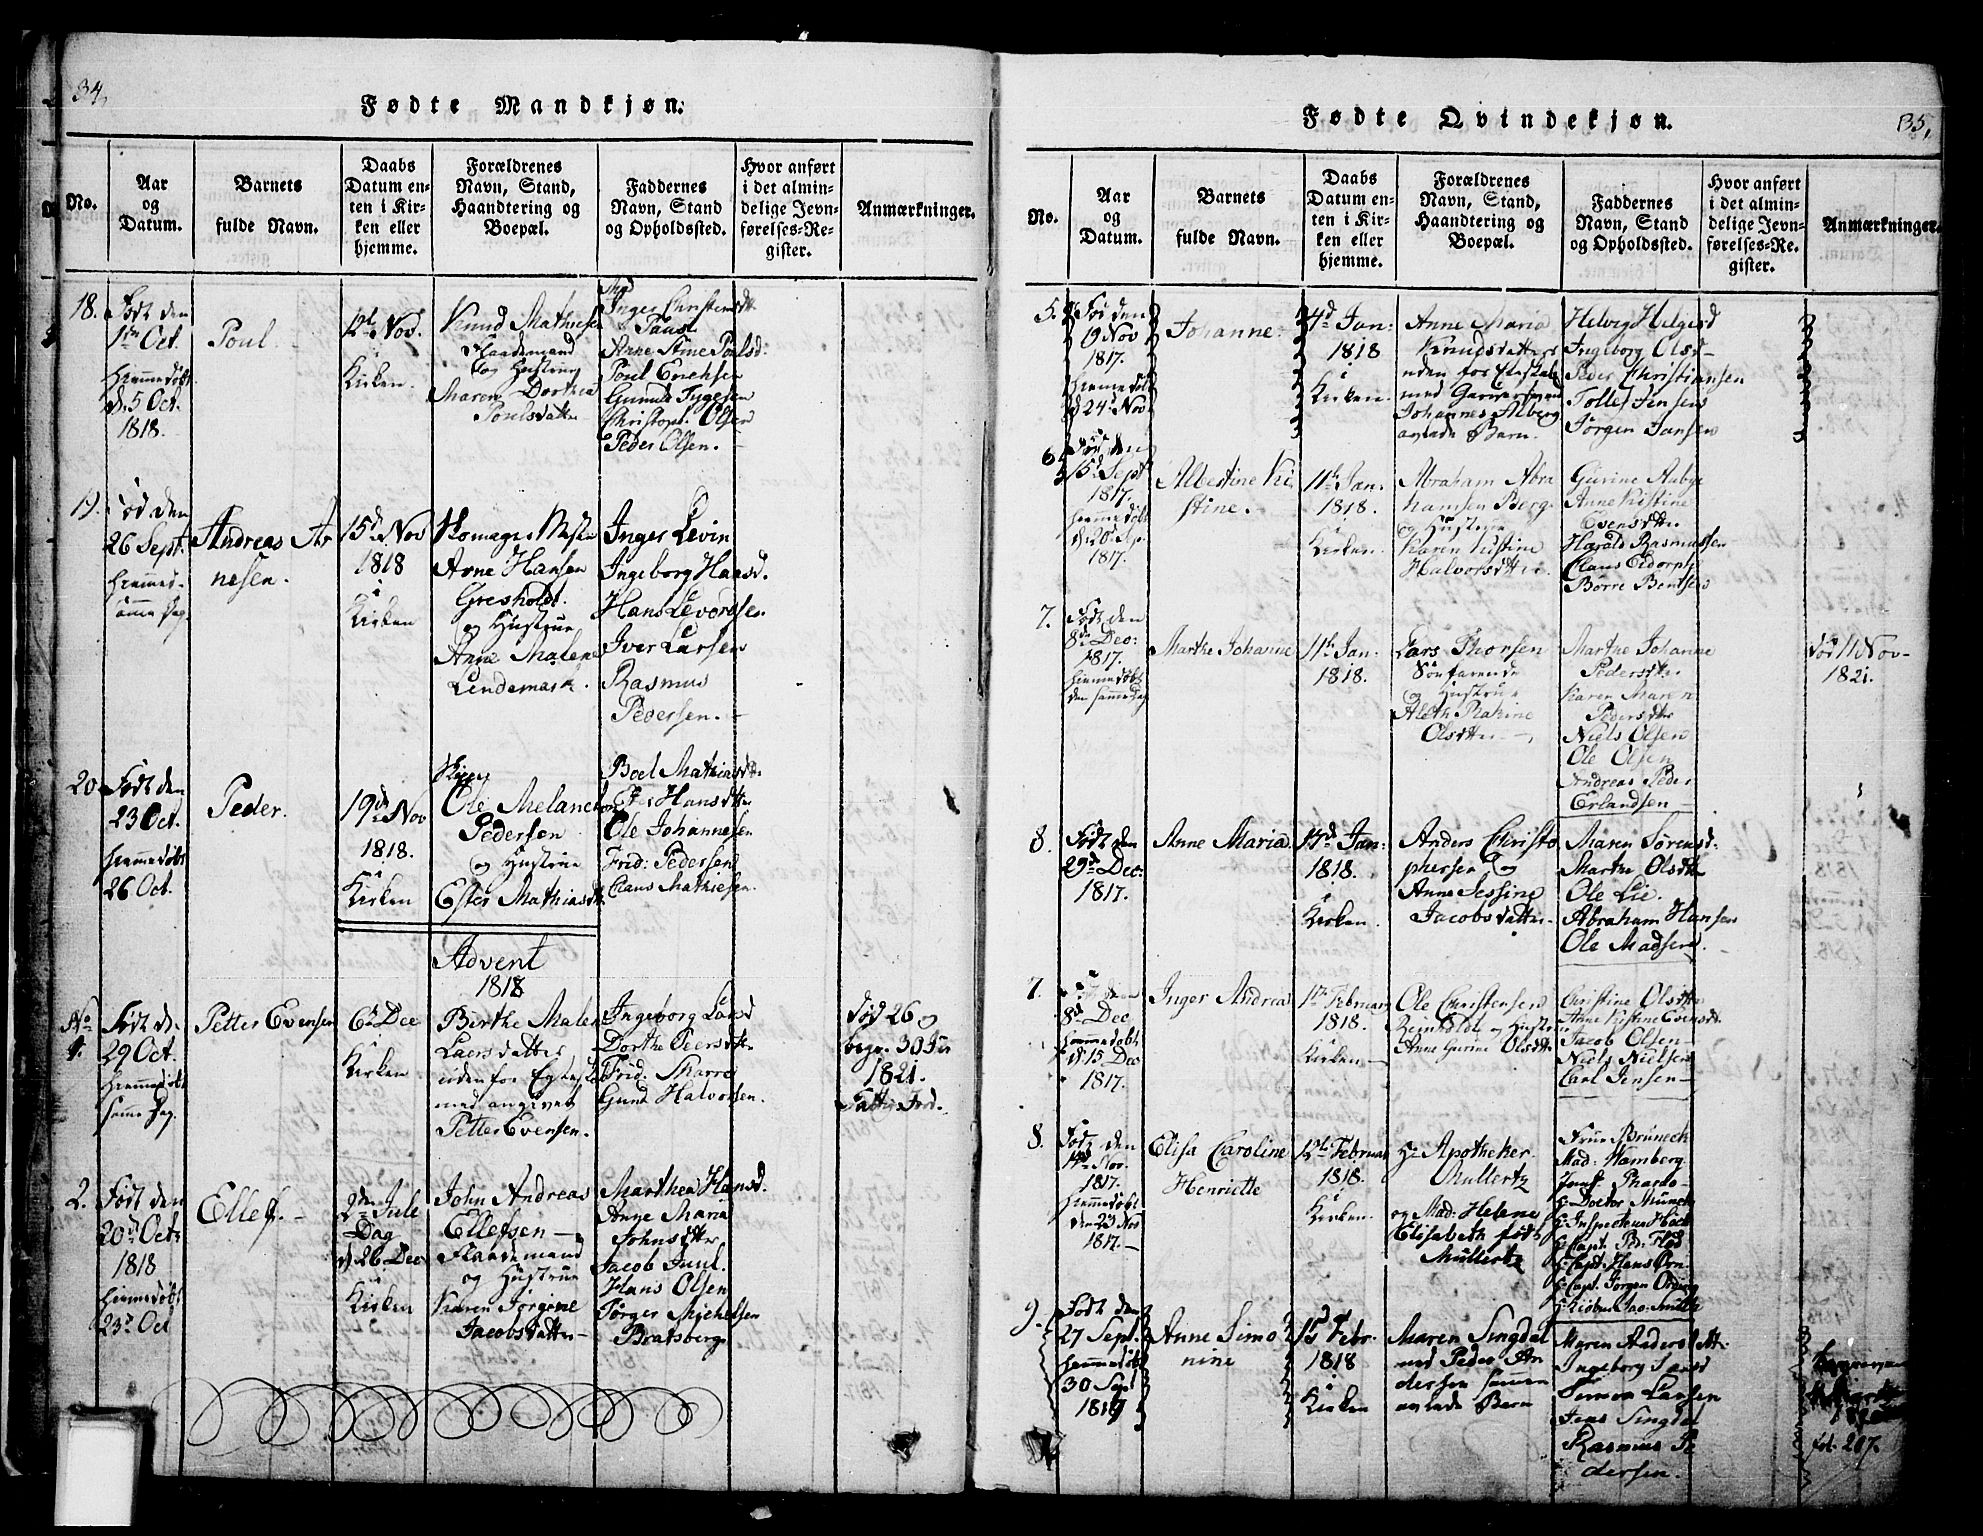 34.
Fødte Mandkjøn.
No.
Aar
og
Datum.
Barnets
fulde Navn.
Daabs
Datum en-
ten i Kir-
ken eller
hjemme.
Forældrenes
Navn, Stand,
Haandtering og
Boepæl.
Faddernes
Navn, Stand
og Opholdssted.
Hvor anført
i det almin-
delige Jevn-
førelses-Re-
gister.
Anmærkninger.
18.
Født den
1ste Oct.
hiemmedøbt
d. 5 Oct.
1818.
Poul.
12te Nov.
i
Kirken.
Knud Mathiesen
Flaademand
og Hustrue
Maren Dorthea
Poulsdatter
Inger Christensdtr
Anne Stine Poulsd.
Poul Erichsen
Gunuld Tygesen
Christoph. Olsen
Peder Olsen.
19.
Fød den
26 Sept.
hiemmed.
samme Dag.
Andreas Ar
nesen.
15d Nov
1818
i
Kirken
Arne Hansen
Gresholdt.
og Hustrue
Anne Malene
Lindemark
Inger Levin
Ingeborg Haasd.
Hans Levordsen
Iver Larsen
Rasmus
Pedersen.
20
Født den
23 Oct.
hiemmedøbt
26 Oct.
Peder.
19de Nov
1818.
i
Kirken
Ole Melanchton
Pedersen
og Hustrue
Ester Mathiasdtr
Boel Mathiasdtr
Ester Hansdtr
Ole Johannesen
Frid: Pedersen
Claus Mathiesen.
Advent
1818
No
1.
Født d.
29 Oct.
hiemmedøbt
samme Dag.
Petter Evensen
6te Dec
i
Kirken
Birthe Malene
Laersdatter
uden for Egteskab
med angivet
Petter Evensen.
Ingeborg Lund
Dorthe Peersdtr
Frid: Marre
Gund Halvorsen.
død 26 og
begr. 30 Jul
1821.
2.
Født den
20de Octr
1818
hiemmedøbt
23de Oct
Ellef.
2den Jule
Dag
d. 26 Dec
i
Kirken
John Andreas
Ellefsen
Flaademand
og Hustrue
Karen Jørgine
Jacobsdatter
Marthea Hansd.
Anne Maria
Johnsdtter
Jacob Juul.
Hans Olsen
Jørger Michelsen
Bratsberg
35.
Fødte Qvindekjøn.
No.
Aar
og
Datum.
Barnets
fulde Navn.
Daabs
Datum en-
ten i Kir-
ken eller
hjemme.
Forældrenes
Navn, Stand,
Haandtering og
Boepæl.
Faddernes
Navn, Stand
og Opholdssted.
Hvor anført
i det almin-
delige Jevn-
førelses-Re-
gister.
Anmærkninger.
5.
Fød den
19 Nov
1817.
hiemmedøbt
d 24de Nov
Johanne.
4de Jan:
1818
i
Kirken.
Anne Maria
Knudsdatter
uden for Egteskab
med Garversvend
Johannes Alberg
avlede Barn.
Helvig Helgesd
Ingeborg Olsd
Peder Christiansen
Tollef Jensen
Jørgen Jansen
6.
Fød den
15d Sept
1817.
hiemmedøbt
d. 20de Sep.
1817.
Albertine Ki
stine.
11te Jan.
1818.
i
Kirken.
Abraham Abra
hamsen Berg
og Hustrue
Karen Kistine
Halvorsdtter.
Gurine Aaby
Anne Kistine
Evensdtr
Harald Rasmussen
Claus Eidorph
Børre Bentsen
7.
Født den
8de Dec:
1817.
hiemmedøbt
den samme Dag
Marthe Johanne
11te Jan.
1818.
Lars Thorsen
Søefarende
og Hustrue
Aleth Rakine
Olsdtter
Marthe Johanne
Pedersdtr
Karen Maren
Pedersdtr
Niels Olsen
Ole Olsen
Andreas Peder
Erlandsen
død 11 Nov
1821.
8.
Født den
29de Dec:
1817.
Anne Maria
17de Jan:
1818.
i
Kirken
Anders Christo
phersen og
Anne Sessine
Jacobsdatter.
Maren Sørensd.
Marthe Olsdtr
Ole Lie.
Abraham Hansen
Ole Madsen.
7.
8d Dec
hiemmedøbt
d. 15 Dec
1817.
Inger Andrea
1ste Februar
1818.
i
Kirken
Ole Christensen
Reinholdt og Hustrue
Anne Gurine Olsdtr
Christine Olsdtr
Anne Kistine Evensdtr
Jacob Olsen
Niels Nielsen
Carl Jensen
8.
Født den
14de Nov.
1817.
hiemmedøbt
den 23 Nov
1817.
Elisa Caroline
Henriette
12te Februar
1818.
i
Kirken.
Hr Apotheker
Mullertz
og Mad: Helene
Elisabeth født
Müllertz
Frue Brüneck
Mad. Hamberg
Hr Doctor Münch
Hr Capt. Hans Ørn
9.
Født den
27 Sept.
hiemmedøbt
30 Sept
1817
Anne Simo
nine
15d Febr.
1818
i
Kirken
Maren Singdal
med Peder An
dersen sammen
avlede Barn
Maren Andersdttr.
Simon Larsen
Jens Singdal
Rasmus Pe
dersen.
fol. 207.